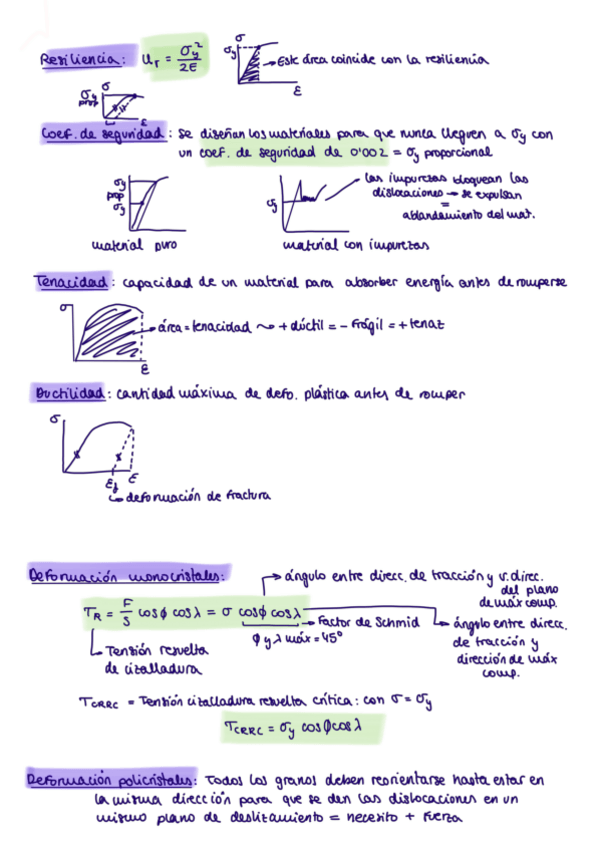 Resiliencia: Ur = σy² / 2E
σ
σy
→ Este área coincide con la resiliencia
ε
σ
σy
prop
ε
Coef. de seguridad: se diseñan los materiales para que nunca lleguen a σy con
un coef. de seguridad de 0'002 = σy proporcional
σy
prop
σy
material puro
σy
material con impurezas
las impurezas bloquean las
dislocaciones → se expulsan
=
ablandamiento del mat.
Tenacidad: capacidad de un material para absorber energía antes de romperse
σ
→ área = tenacidad ~> + dúctil = - frágil = + tenaz
ε
Ductilidad: cantidad máxima de defo. plástica antes de romper
σ
εf ε
↳ deformación de fractura
Deformación monocristales:
→ ángulo entre direcc. de tracción y v. direc.
del plano
de máx comp.
τR = F/S cosϕ cosλ = σ cosϕ cosλ
→ Factor de Schmid
ϕ y λ máx = 45°
↳ ángulo entre direcc.
de tracción y
dirección de máx
comp.
↳ Tensión resuelta
de cizalladura
τCRRC = Tensión cizalladura resuelta crítica: con σ = σy
τCRRC = σy cosϕ cosλ
Deformación policristales: Todos los granos deben reorientarse hasta estar en
la misma dirección para que se den las dislocaciones en un
mismo plano de deslizamiento = necesito + fuerza